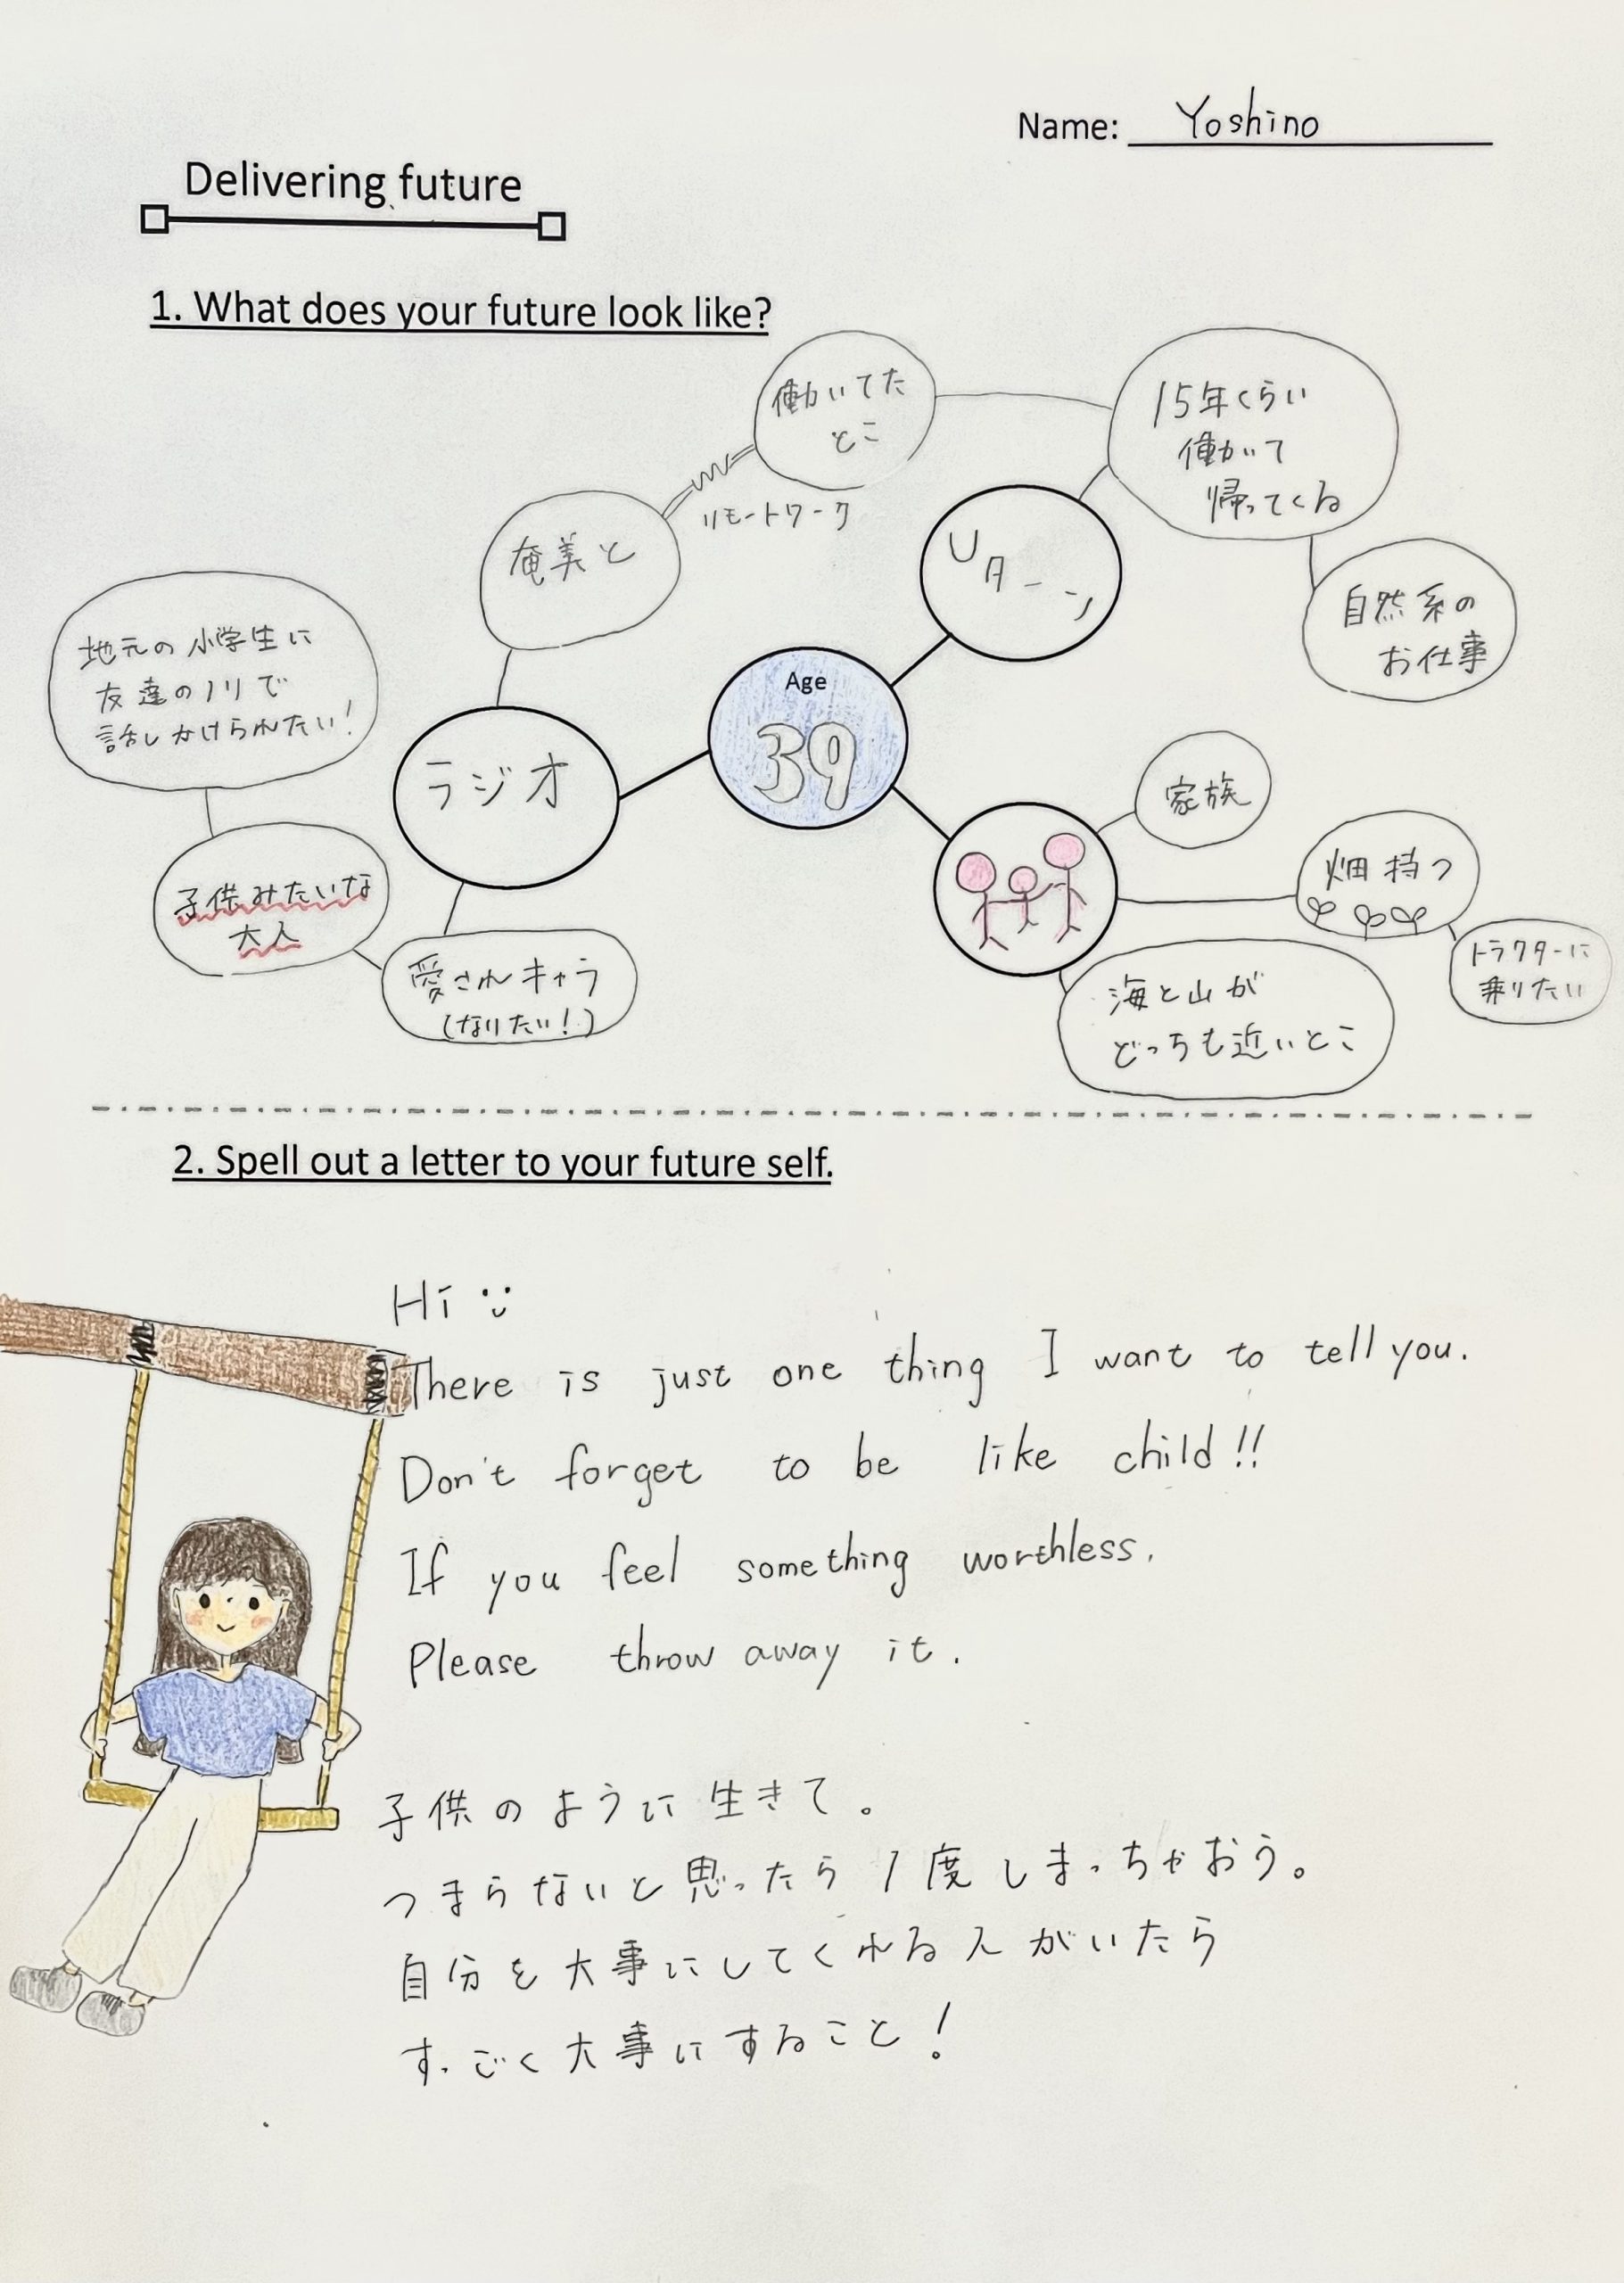 Name: Yoshino
Delivering future
1. What does your future look like?
働いてた
とこ
15年くらい
働いて
帰ってくる
リモートワーク
奄美と
Uターン
自然系の
お仕事
地元の小学生に
友達のノリで
話しかけられたい!
Age
39
ラジオ
家族
子供みたいな
大人
畑持つ
トラクターに
乗りたい
愛されキャラ
(なりたい!)
海と山が
どっちも近いとこ
2. Spell out a letter to your future self.
Hi
There is just one thing I want to tell you.
Don't forget to be like child!!
If you feel something worthless.
Please throw away it.
子供のように生きて。
つまらないと思ったら1度しまっちゃおう。
自分を大事にしてくれる人がいたら
すっごく大事にすること!